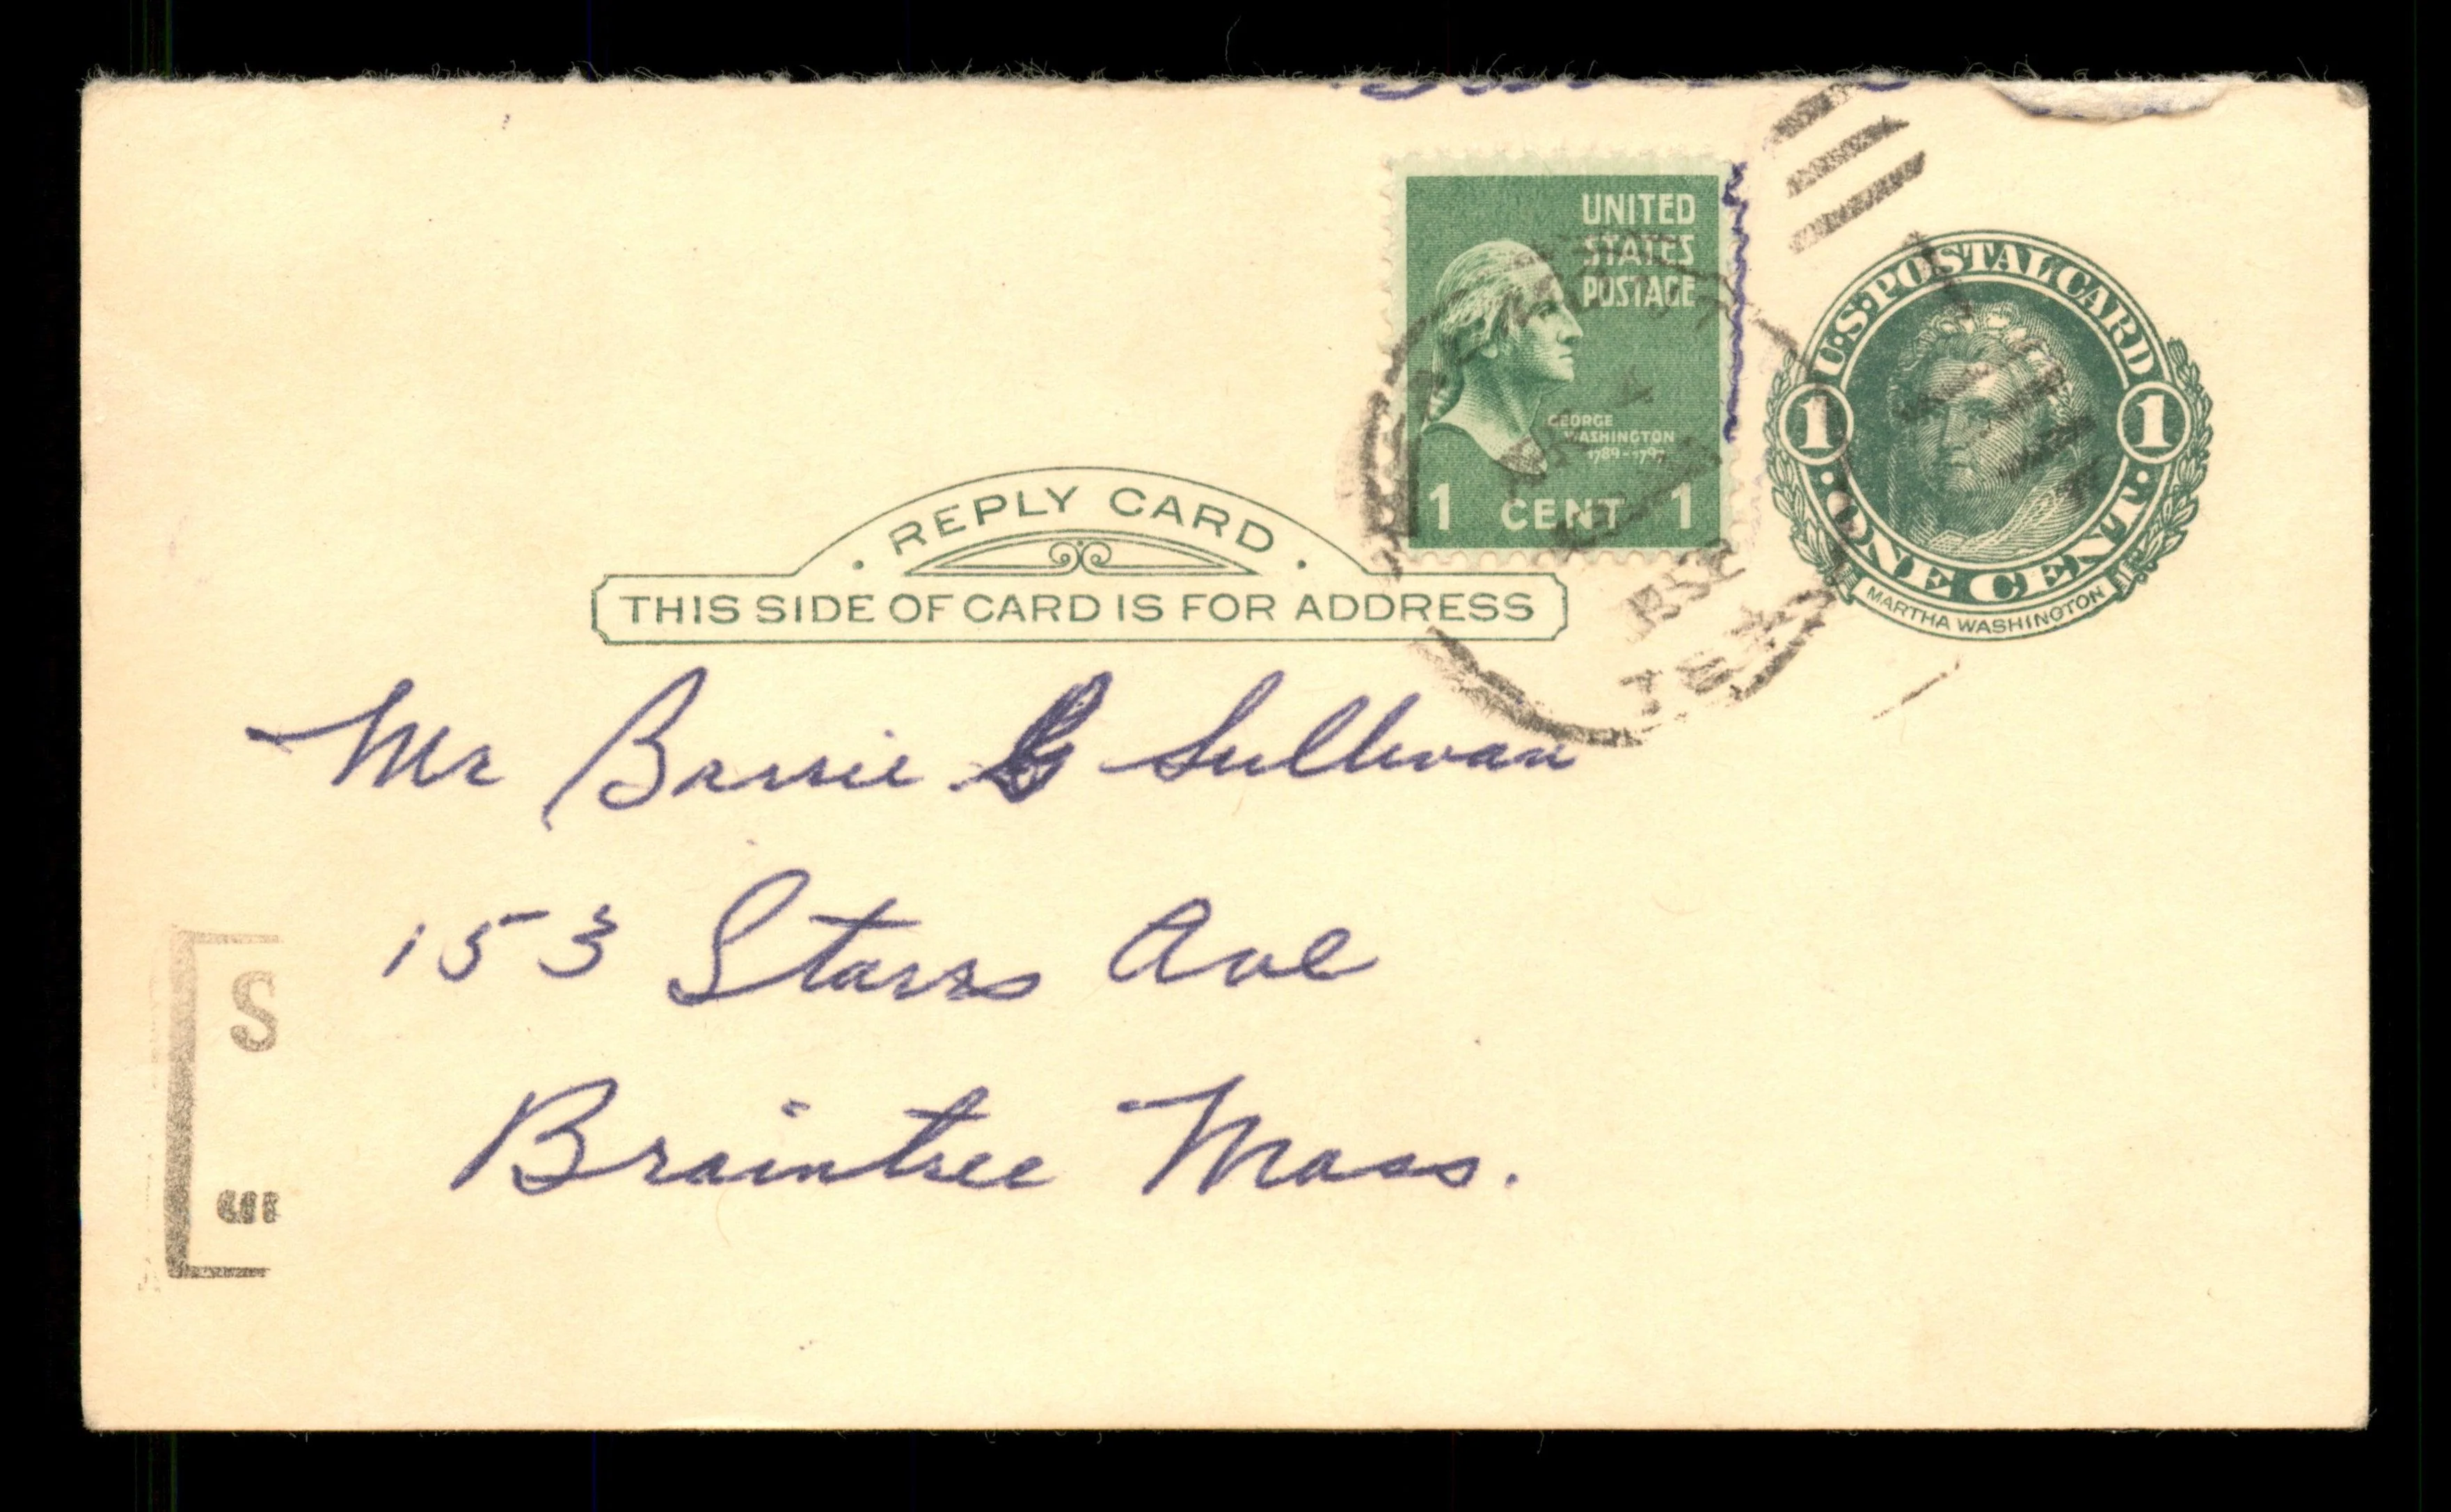 UNITED
STATES
POSTAGE
GEORGE
WASHINGTON
1789-1797
1 CENT 1
U.S. POSTAL CARD
1 1
· ONE CENT ·
MARTHA WASHINGTON
· REPLY CARD ·
THIS SIDE OF CARD IS FOR ADDRESS
1952
TEX
Mr Barrie G Sullivan
153 Starrs Ave
Braintree Mass.
S